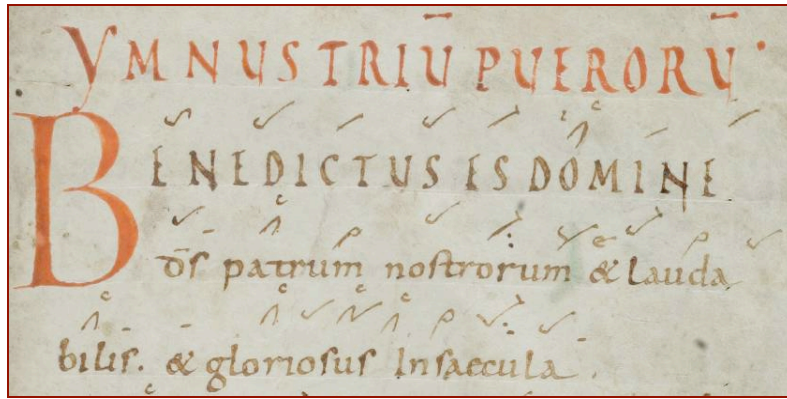 YMNUS TRIŪ PUERORŪ.
BENEDICTUS ES DOMINE
d̄s patrum nostrorum & lauda
bilis. & gloriosus In saecula.